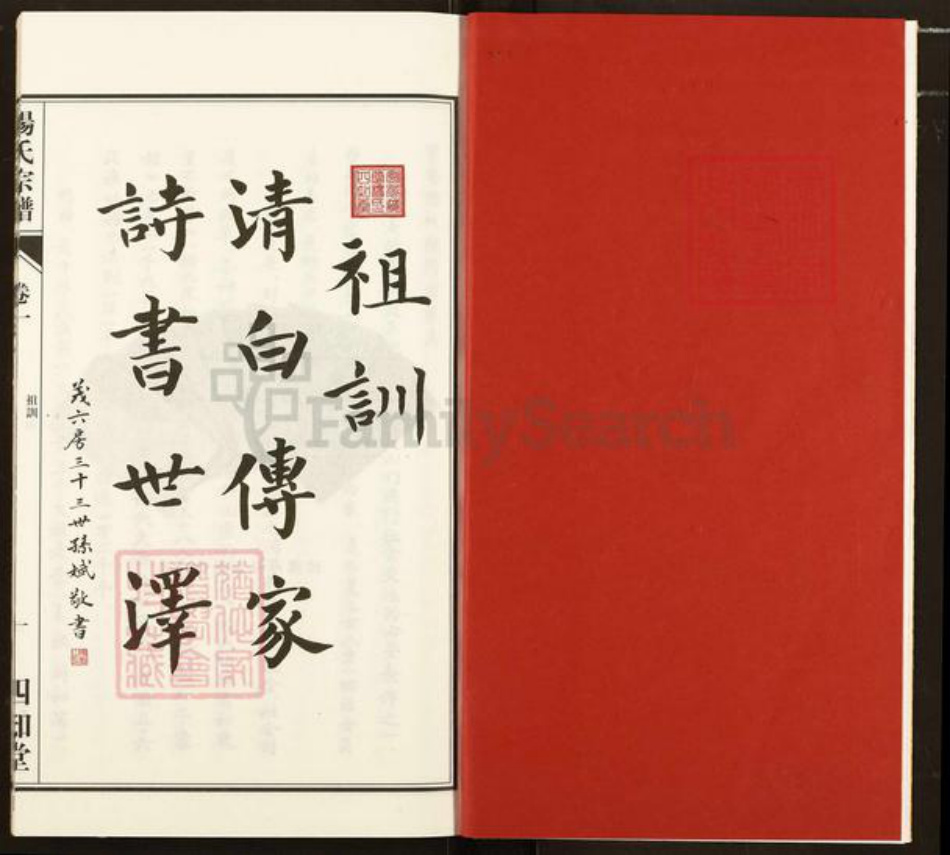 祖訓
清白傳家
詩書世澤
茂六房三十三世孫斌敬書
楊氏宗譜
卷一
祖訓
一
四知堂
FamilySearch